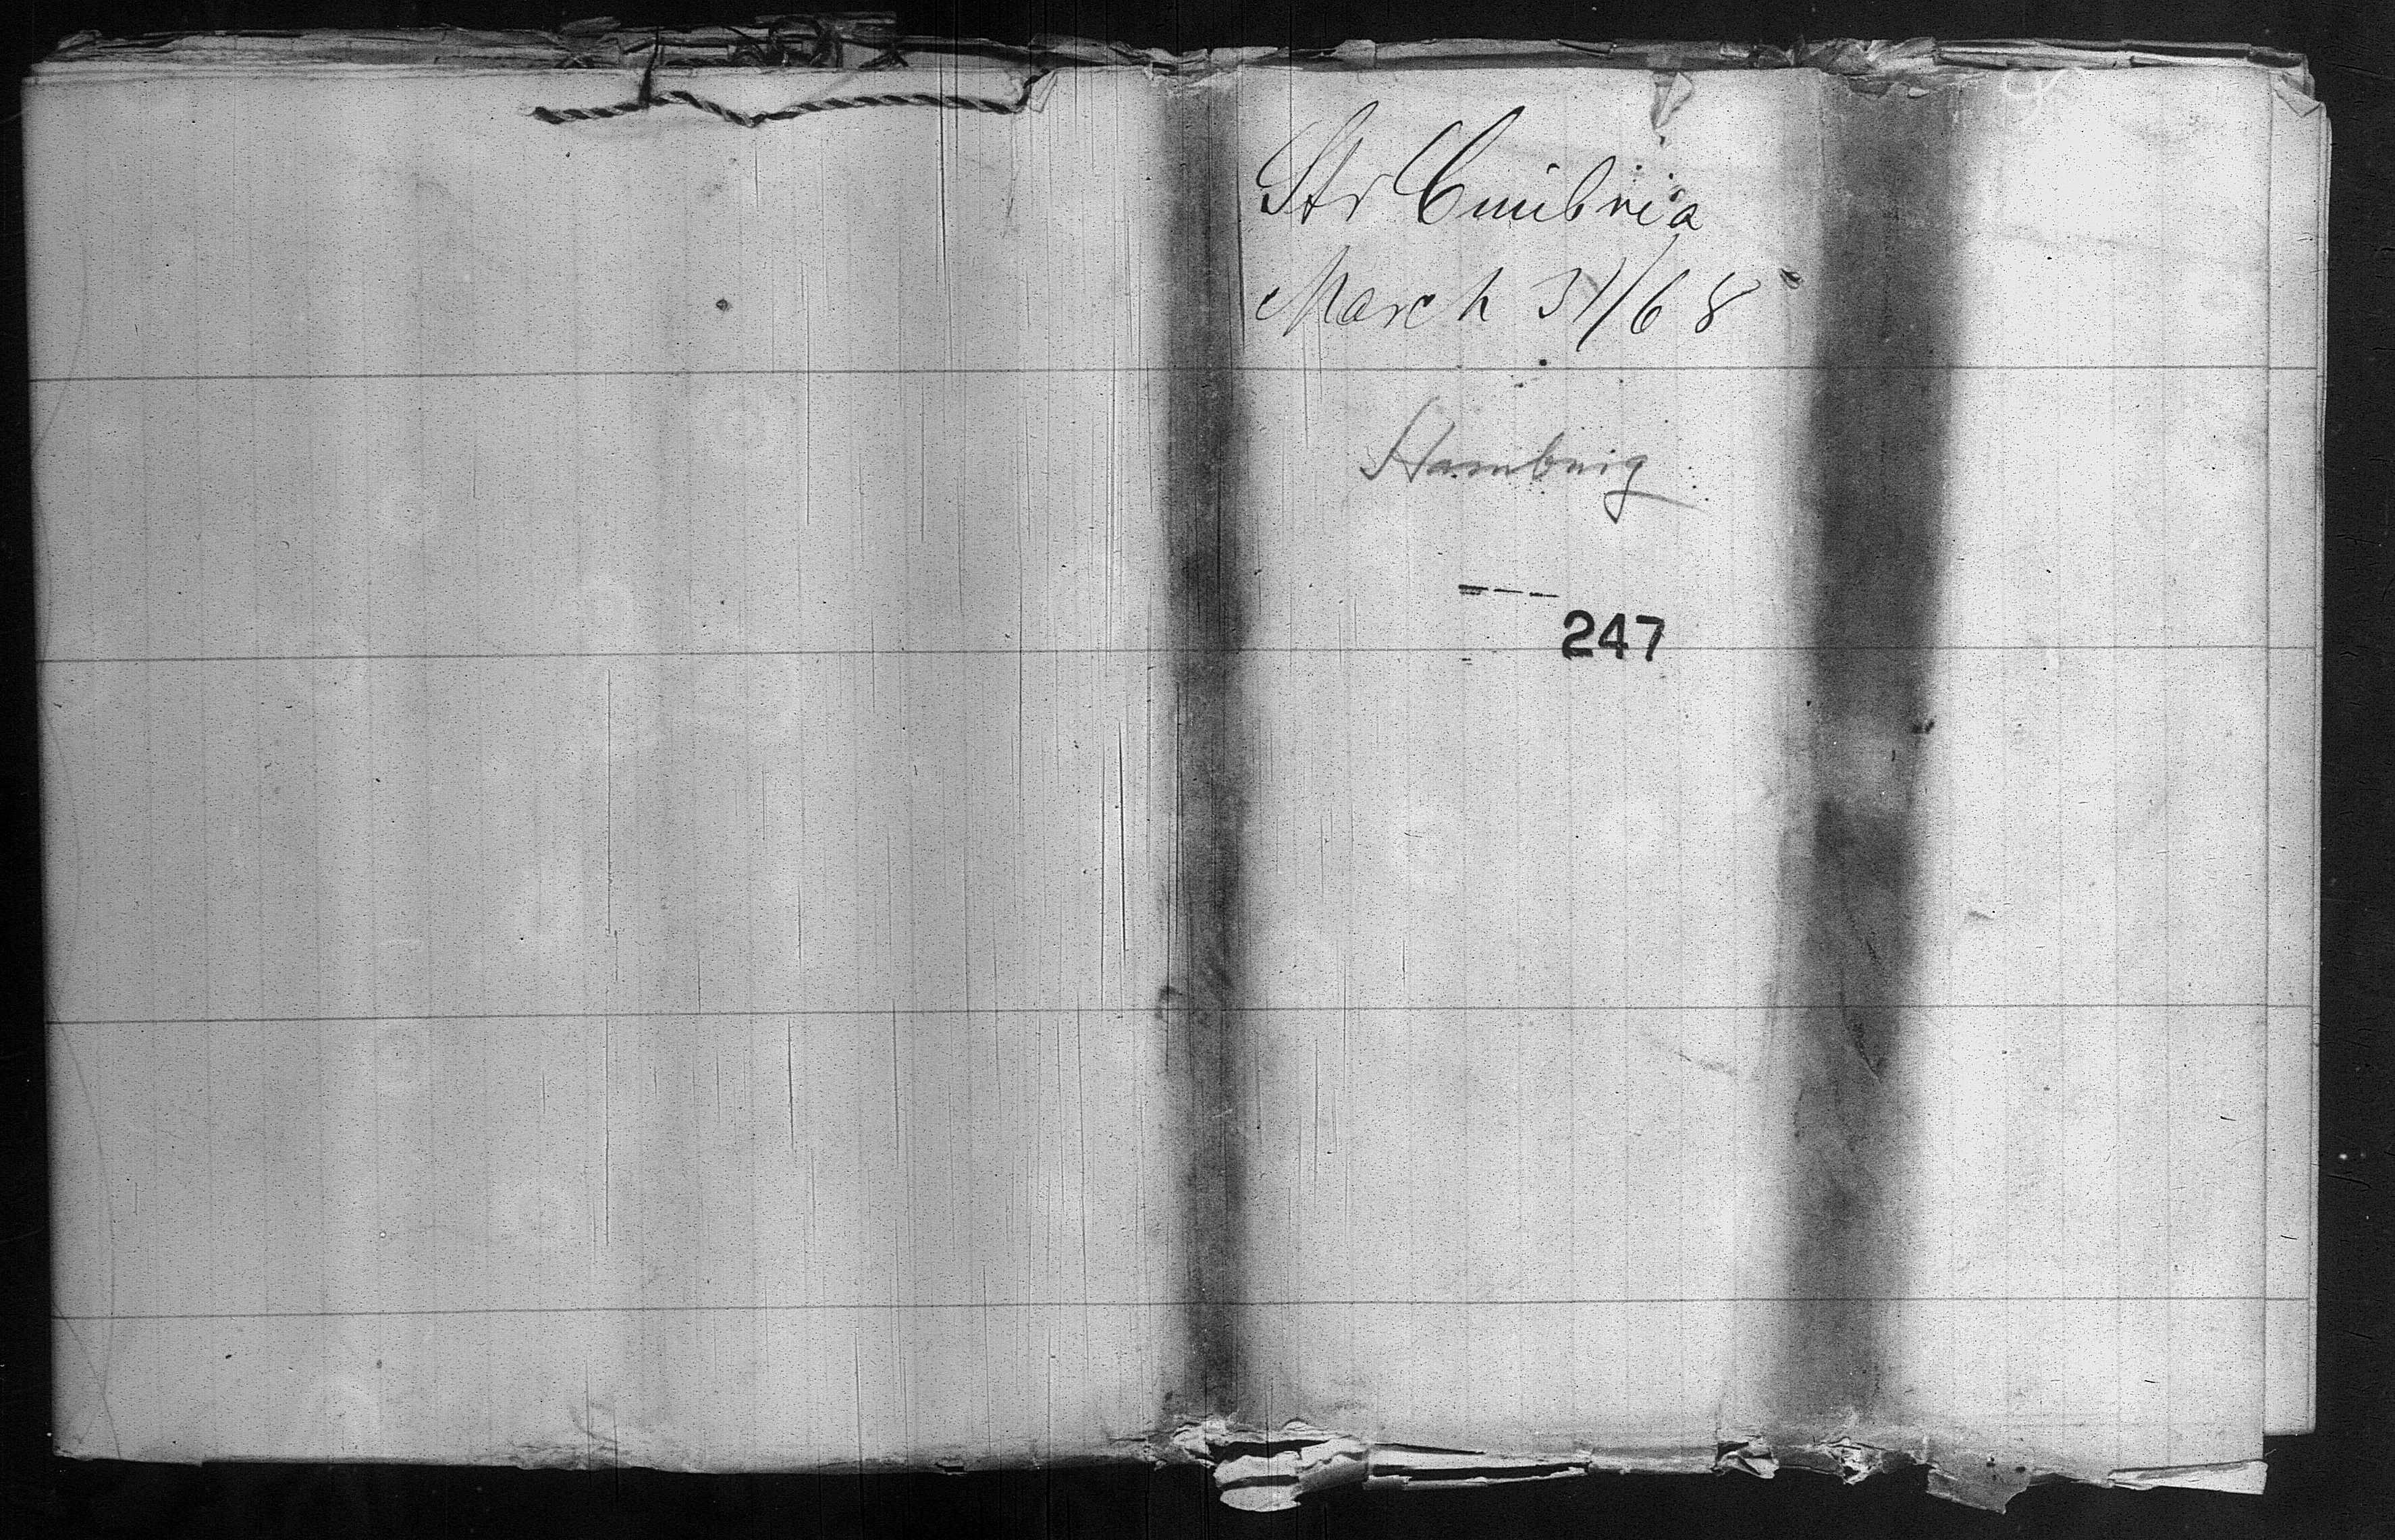 Str Cimbria
March 31/68
Hamburg
247